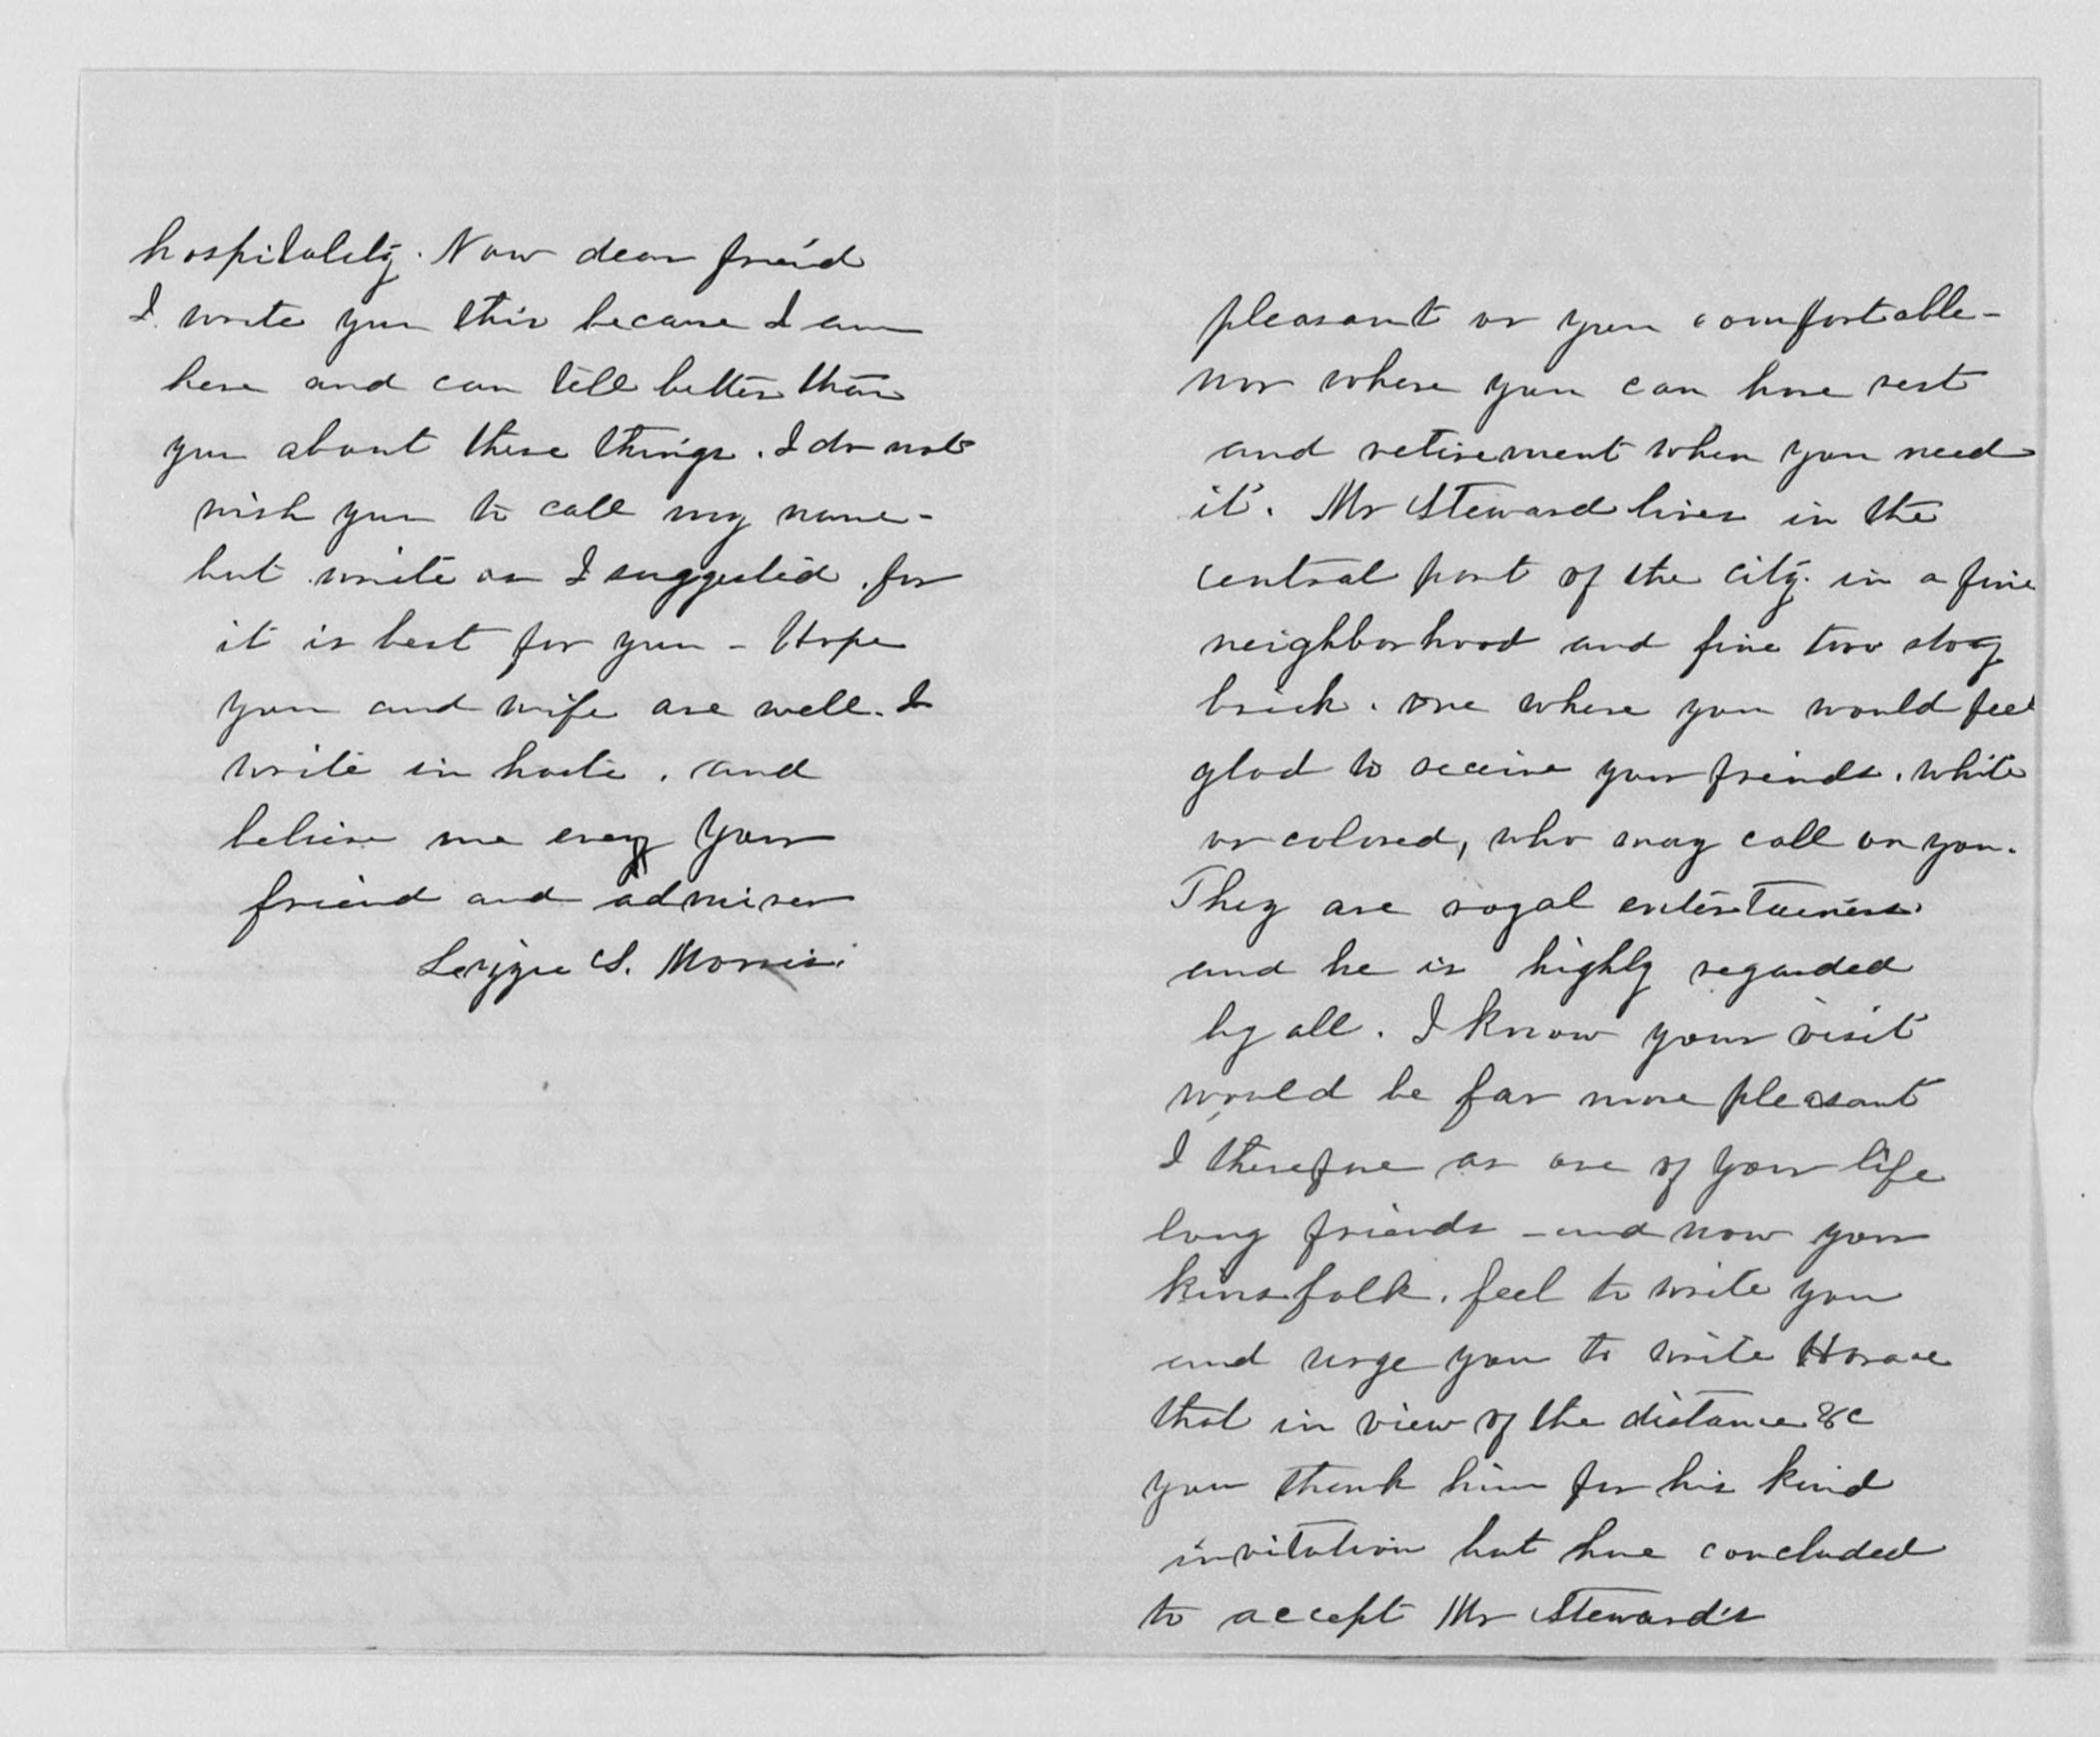 hospitality. Now dear friend
I write you this because I am
here and can tell better than
you about these things. I do not
wish you to call my name -
but write as I suggested. for
it is best for you - Hope
you and wife are well. I
write in haste. and
believe me ever your
friend and admirer
Lizzie S. Morris.
pleasant or you comfortable -
nor where you can have rest
and retirement when you need
it. Mr Steward lives in the
central part of the city. in a fine
neighborhood and fine two story
brick. one where you would feel
glad to receive your friends. white
or colored, who may call on you.
They are royal entertainers.
and he is highly regarded
by all. I know your visit
would be far more pleasant
I therefore as one of your life
long friends - and now your
kinsfolk. feel to write you
and urge you to write Horace
that in view of the distance &c
you thank him for his kind
invitation but have concluded
to accept Mr Steward's